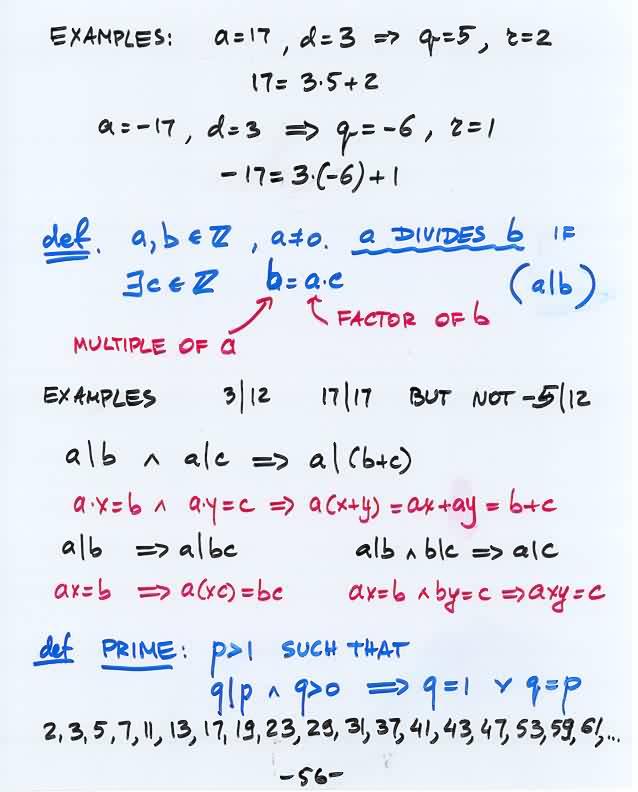 EXAMPLES: a=17, d=3 ⇒ q=5, r=2
17=3·5+2
a=-17, d=3 ⇒ q=-6, r=1
-17=3·(-6)+1
def. a,b∈ℤ, a≠0. a DIVIDES b IF
∃c∈ℤ b=a·c (a|b)
FACTOR OF b
MULTIPLE OF a
EXAMPLES 3|12 17|17 BUT NOT -5|12
a|b ∧ a|c ⇒ a|(b+c)
a·x=b ∧ a·y=c ⇒ a(x+y)=ax+ay=b+c
a|b ⇒ a|bc a|b ∧ b|c ⇒ a|c
ax=b ⇒ a(xc)=bc ax=b ∧ by=c ⇒ axy=c
def PRIME: p>1 SUCH THAT
q|p ∧ q>0 ⇒ q=1 ∨ q=p
2,3,5,7,11,13,17,19,23,29,31,37,41,43,47,53,59,61,...
-56-